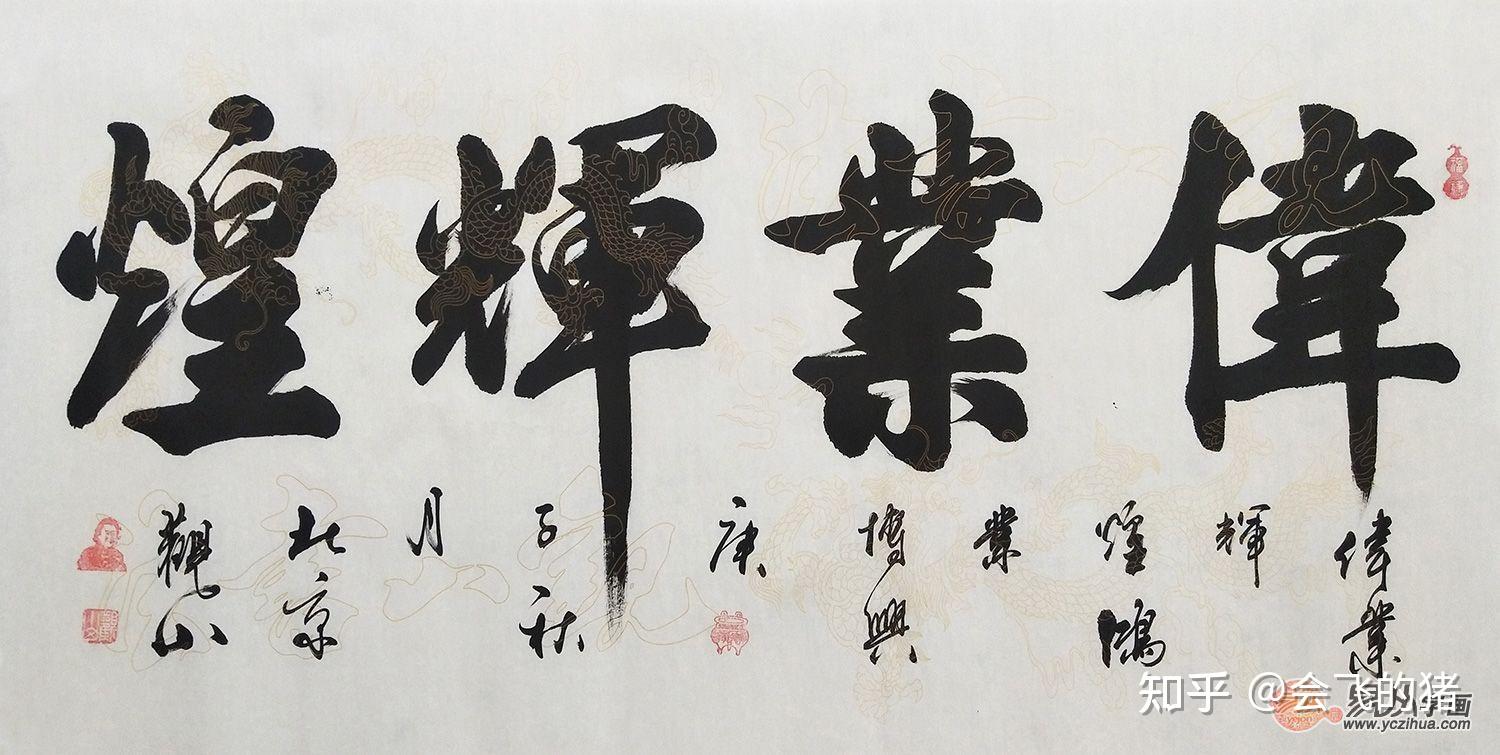 偉業輝煌
偉業
輝
煌鴻
業
博興
庚
子秋
月
北京
觀山
知乎 @会飞的猪
www.yczihua.com